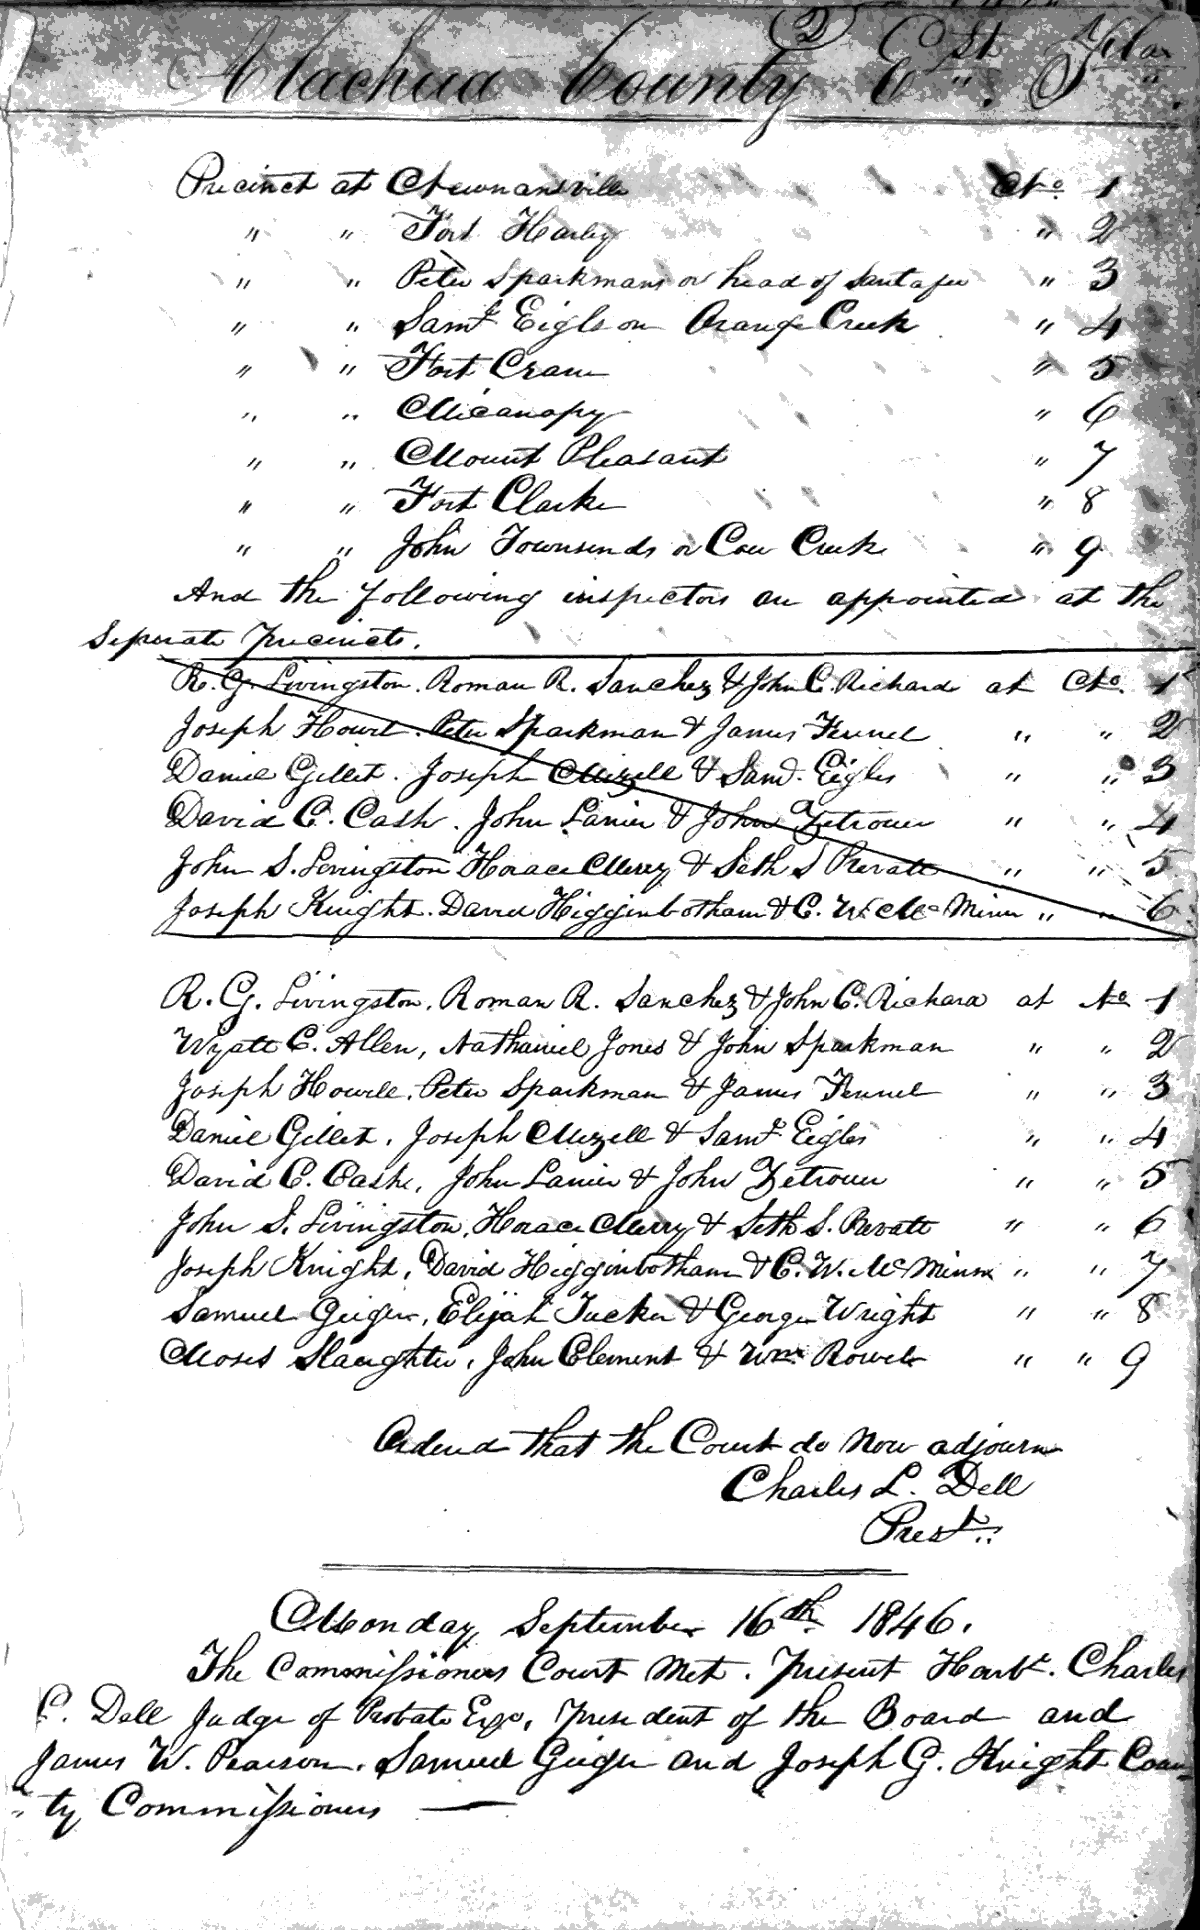 2
Alachua County Est. Flor.
Precinct at Newnansville No. 1
" " Fort Harley " 2
" " Peter Sparkmans or head of Santafee " 3
" " Saml Eigls on Orange Creek " 4
" " Fort Crane " 5
" " Micanopy " 6
" " Mount Pleasant " 7
" " Fort Clarke " 8
" " John Townsends or Cow Creek " 9
And the following inspectors are appointed at the
Seperate precincts.
R. G. Livingston. Roman R. Sanchez & John C. Richard at No. 1
Joseph Howel. Peter Sparkman & James Fennel " " 2
Daniel Gillet. Joseph Mizell & Saml. Eigles " " 3
David C. Cash. John Lanier & John Zetrouer " " 4
John S. Livingston Horace Merry & Seth S Prevatt " " 5
Joseph Knight. David Higginbotham & C. W. Mc Minn " " 6
R. G. Livingston. Roman R. Sanchez & John C. Richard at No 1
Wyatt C. Allen, Nathaniel Jones & John Sparkman " " 2
Joseph Howell. Peter Sparkman & James Fennel " " 3
Daniel Gillet, Joseph Mizell & Saml Eigles " " 4
David C. Cash, John Lanier & John Zetrouer " " 5
John S. Livingston, Horace Merry & Seth S. Prevatt " " 6
Joseph Knight, David Higginbotham & C. W. Mc Minn " " 7
Samuel Geiger, Elijah Tucker & George Wright " " 8
Moses Slaughter, John Clement & Wm Rowel " " 9
Ordered that the Court do now adjourn
Charles L. Dell
Prest.
Monday September 16th 1846.
The Commissioners Court Met. Present Charles
Dell Judge of Probate President of the Board and
James W. Pearson. Samuel Geiger and Joseph G. Knight Coun-
ty Commissioners